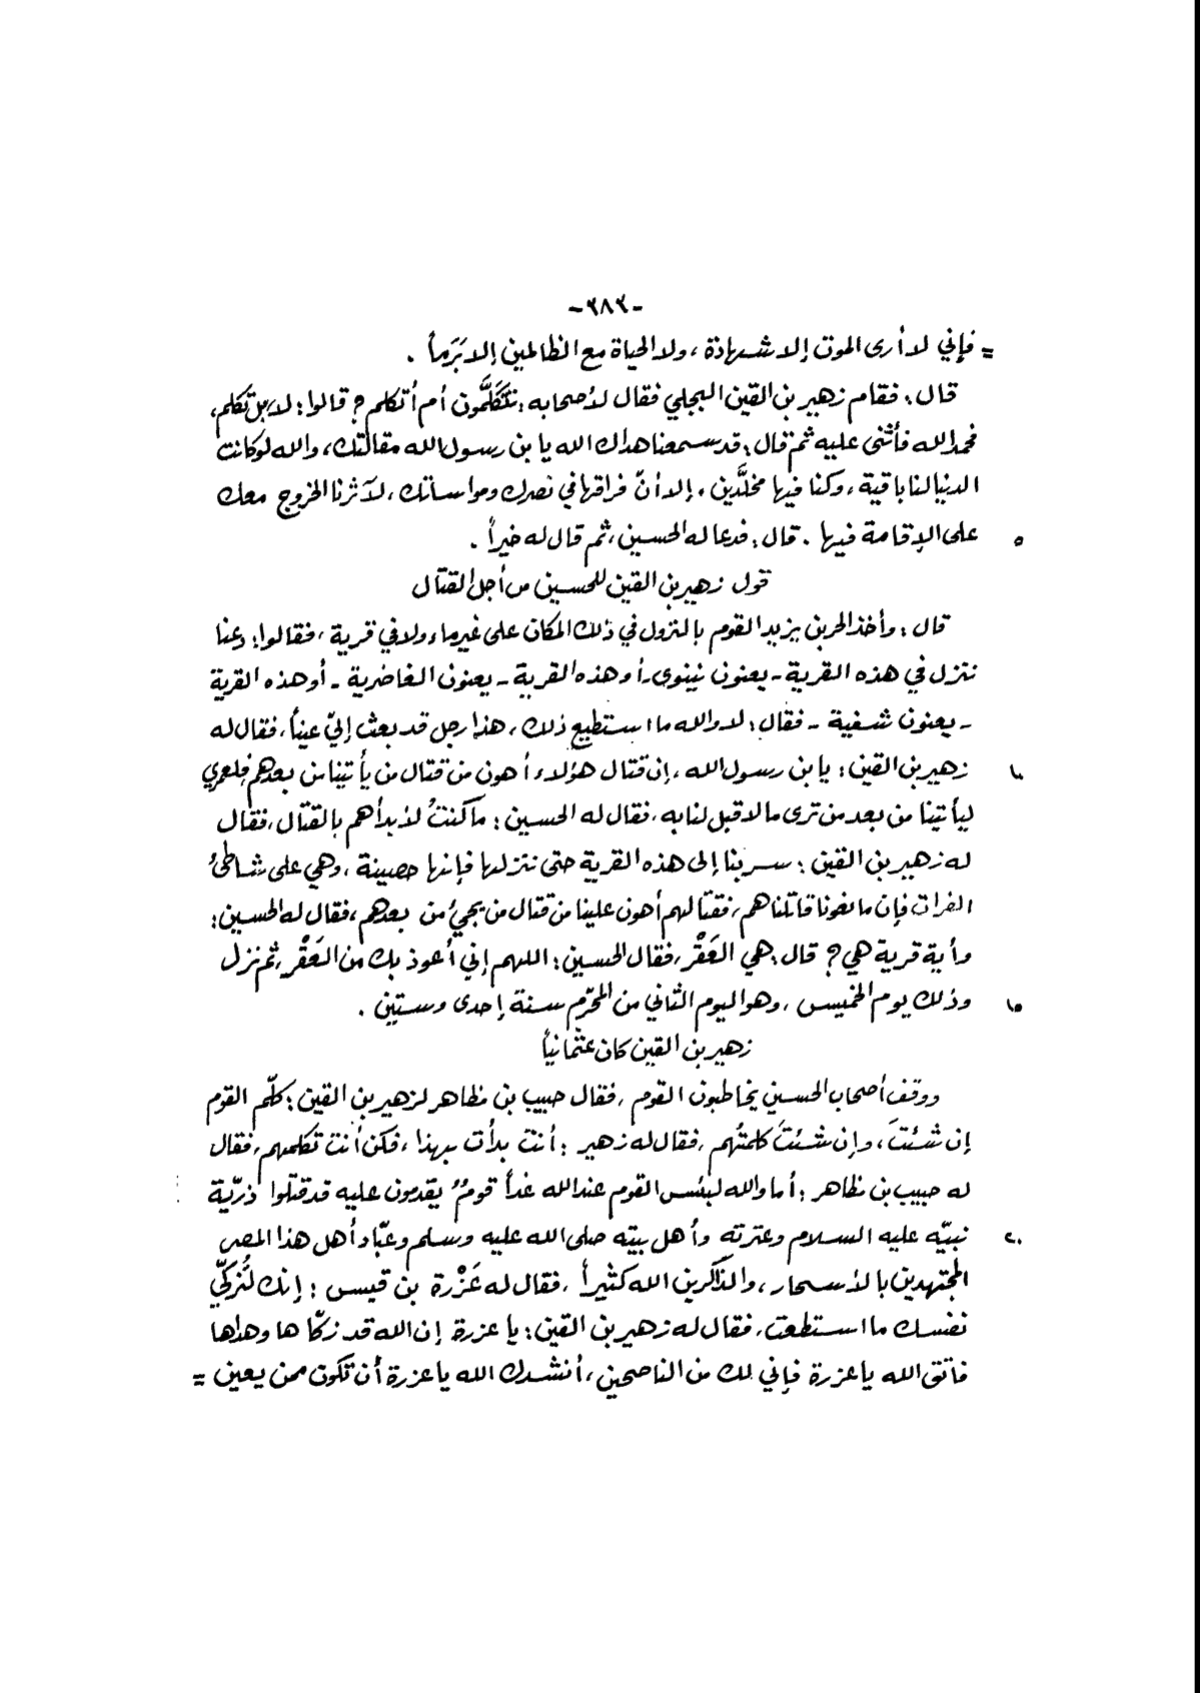 -٢٨٢-
= فإني لا أرى الموت إلا شهادة ، ولا الحياة مع الظالمين إلا بَرَماً .
قال : فقام زهير بن القين البجلي فقال لأصحابه : تتكلَّمون أم أتكلم ؟ قالوا : لا ، بل تكلم ،
فحمد الله فأثنى عليه ثم قال : قد سمعنا هداك الله يا بن رسول الله مقالتك ، والله لو كانت
الدنيا لنا باقية ، وكنا فيها مخلَّدين ، إلا أنّ فراقها في نصرك ومواساتك ، لآثرنا الخروج معك
٥ على الإقامة فيها . قال : فدعا له الحسين ، ثم قال له خيراً .
قول زهير بن القين للحسين من أجل القتال
قال : وأخذ الحر بن يزيد القوم بالنزول في ذلك المكان على غير ماء ولا في قرية ، فقالوا : دعنا
ننزل في هذه القرية - يعنون نينوى - أو هذه القرية - يعنون الغاضرية - أو هذه القرية
- يعنون شفية - فقال : لا والله ما استطيع ذلك ، هذا رجل قد بعث إليّ عيناً ، فقال له
١٠ زهير بن القين : يا بن رسول الله ، إن قتال هؤلاء أهون من قتال من يأتينا من بعدهم فلعمري
ليأتينا من بعد من ترى ما لا قبل لنا به ، فقال له الحسين : ما كنتُ لأبدأهم بالقتال ، فقال
له زهير بن القين : سر بنا إلى هذه القرية حتى ننزلها فإنها حصينة ، وهي على شاطئ
الفرات فإن مانعونا قاتلناهم ، فقتالهم أهون علينا من قتال من يجيُ من بعدهم ، فقال له الحسين :
وأية قرية هي ؟ قال : هي العَقْر ، فقال الحسين : اللهم إني أعوذ بك من العَقْر ، ثم نزل
١٥ وذلك يوم الخميس ، وهو اليوم الثاني من المحرّم سنة إحدى وستين .
زهير بن القين كان عثمانياً
ووقف أصحاب الحسين يخاطبون القوم ، فقال حبيب بن مظاهر لزهير بن القين : كلّم القوم
إن شئتَ ، وإن شئتَ كلمتُهم ، فقال له زهير : أنت بدأت بهذا ، فكن أنت تكلمهم ، فقال
له حبيب بن مظاهر : أما والله لبئس القوم عند الله غداً قومٌ يقدمون عليه قد قتلوا ذرّية
٢٠ نبيّه عليه السلام وعترته وأهل بيته صلى الله عليه وسلم وعبّاد أهل هذا المصر
المجتهدين بالأسحار ، والذاكرين الله كثيراً ، فقال له عَزْرة بن قيس : إنك لتُزكّي
نفسك ما استطعت ، فقال له زهير بن القين : يا عزرة إن الله قد زكّاها وهداها
فاتق الله يا عزرة فإني لك من الناصحين ، أنشدك الله يا عزرة أن تكون ممن يعين =